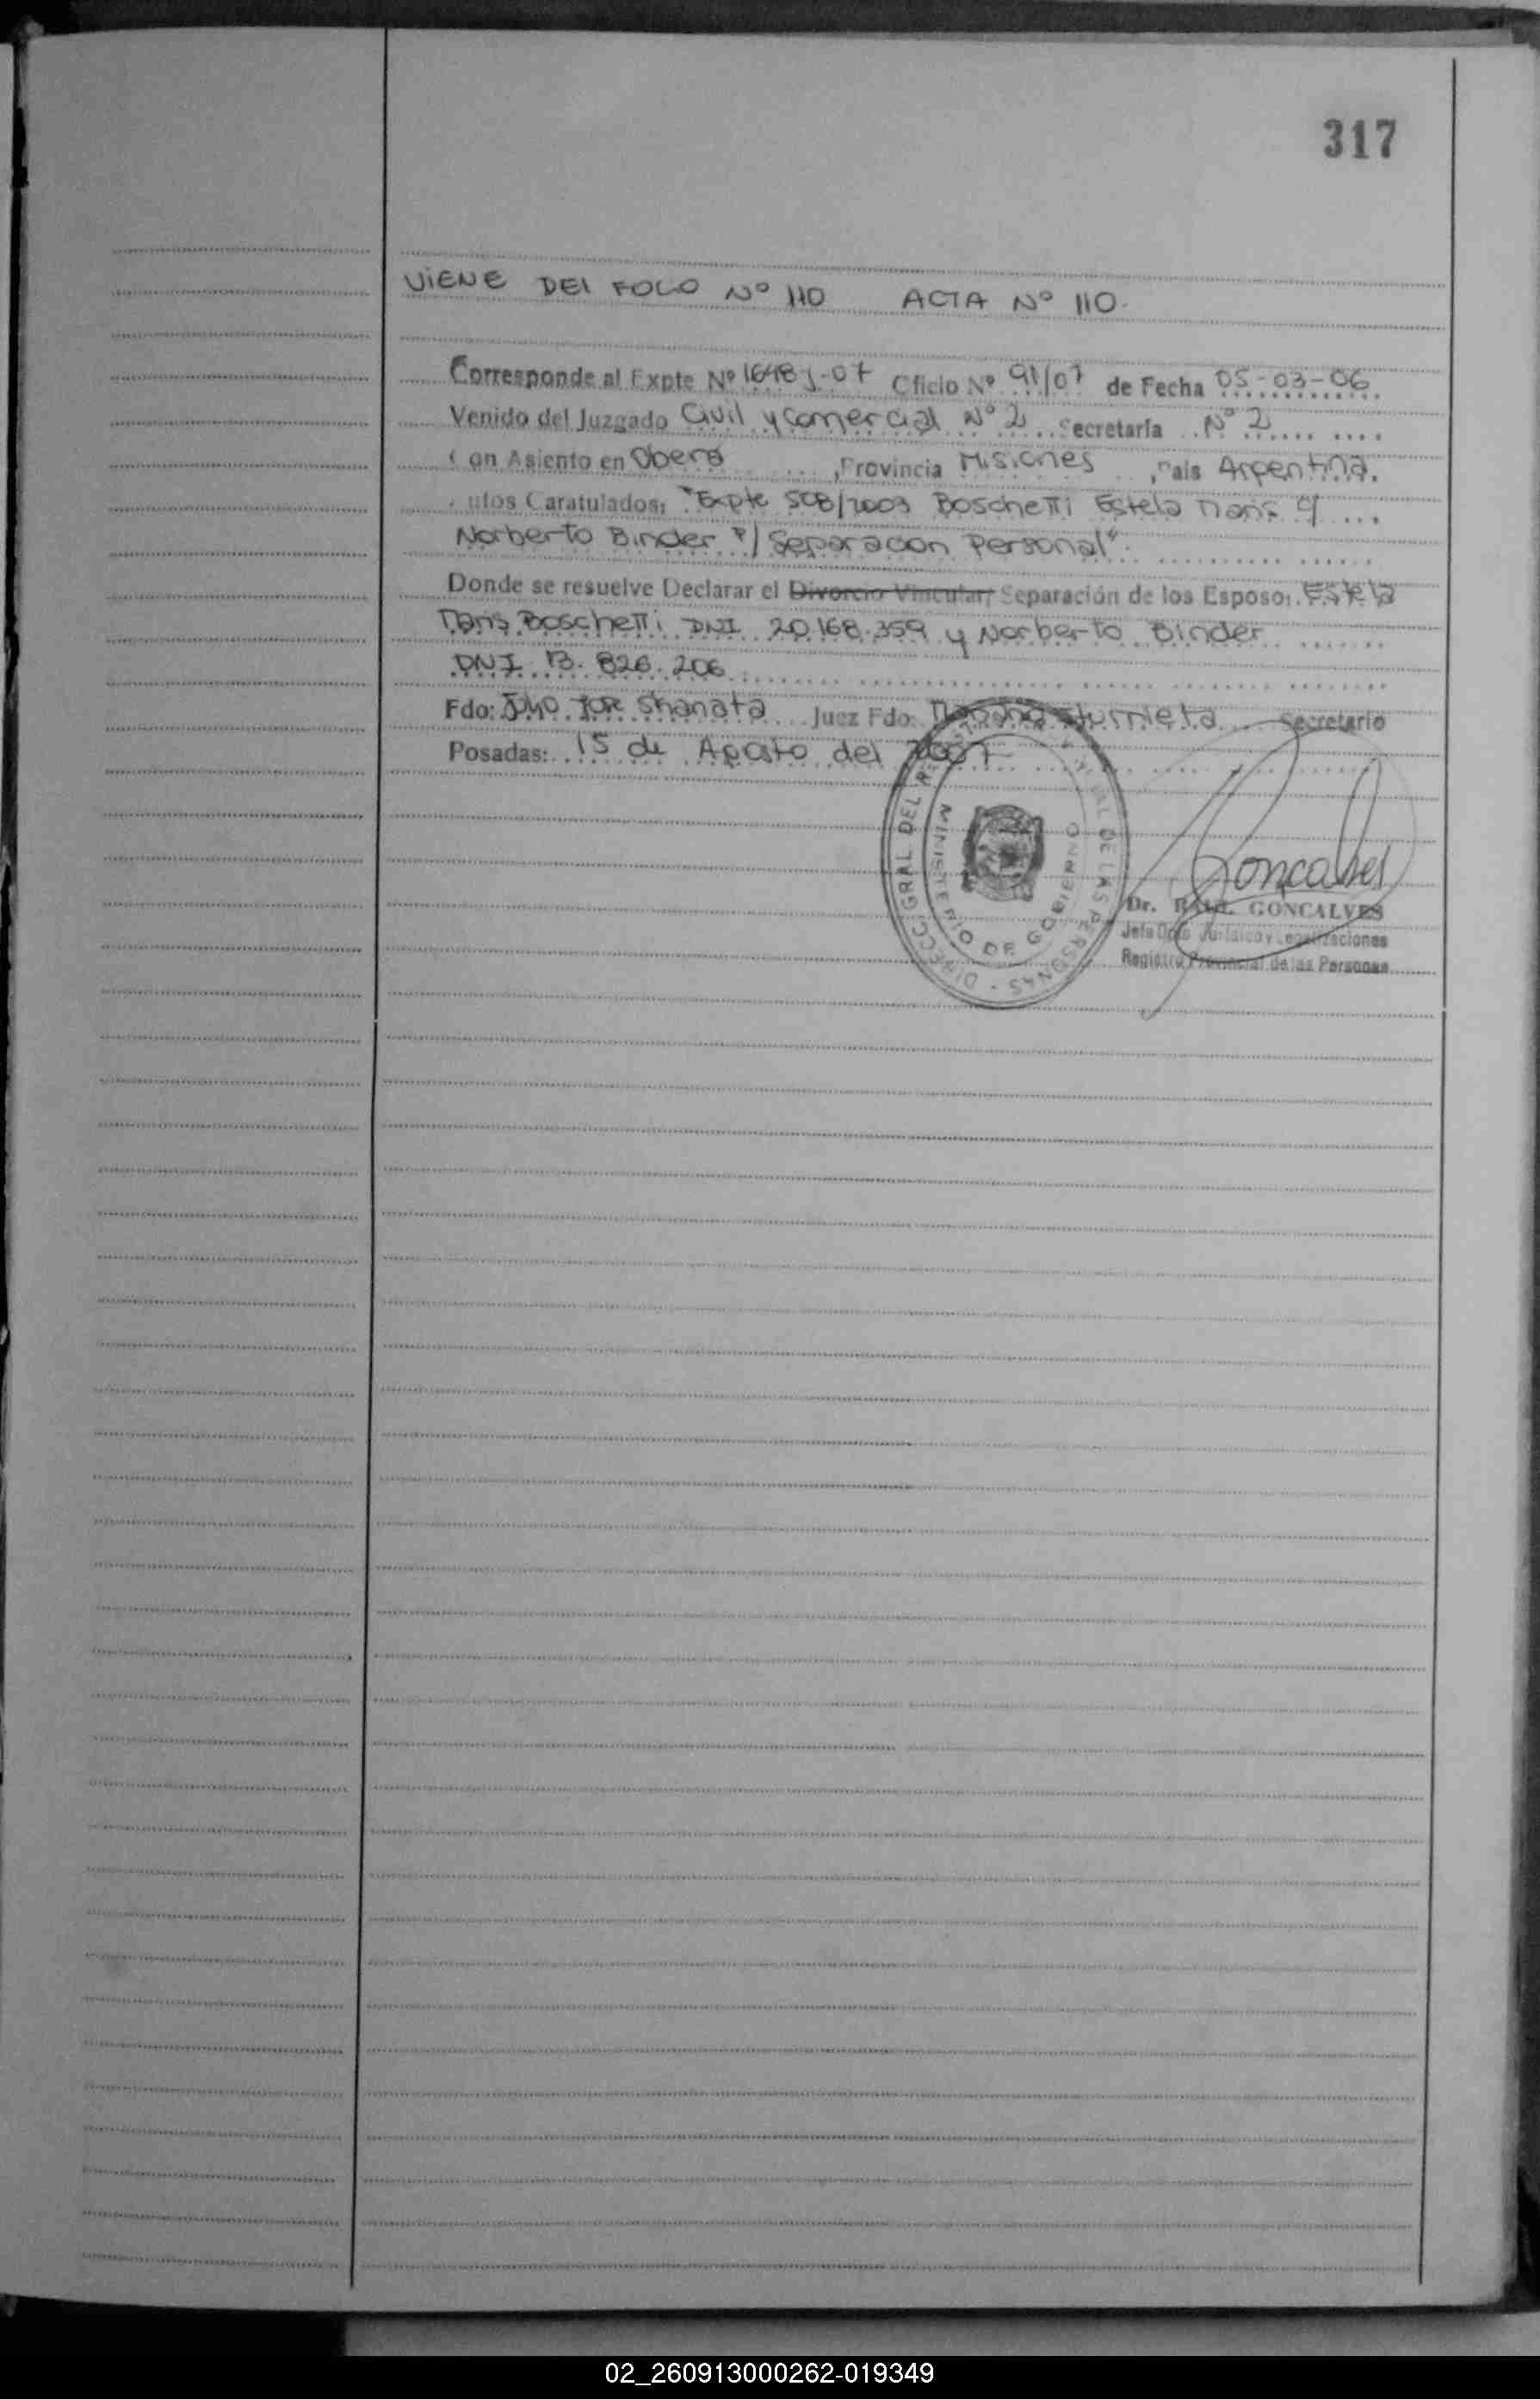 317
VIENE DEL FOLIO Nº 110 ACTA Nº 110.
Corresponde al Expte Nº 1648 J-07 Oficio Nº 91/07 de Fecha 05-03-06
Venido del Juzgado Civil y Comercial Nº 2 Secretaría Nº 2
Con Asiento en Obera, Provincia Misiones, Pais Argentina.
Autos Caratulados: "Expte 508/2003 Boschetti Estela Maris c/
Norberto Binder s/ Separacion Personal".
Donde se resuelve Declarar el Divorcio Vincular, Separación de los Esposos: Estela
Maris Boschetti DNI 20.168.359 y Norberto Binder
DNI 13.826.206
Fdo: Juez Fdo: Secretario
Posadas: 15 de Agosto del 2007
DIRECC. GRAL DEL DE LAS PERSONAS
MINISTERIO DE GOBIERNO
Goncalves
Dr. RAUL GONCALVES
Jefe Dpto Jurídico y Legalizaciones
Registro Provincial de las Personas
02_260913000262-019349